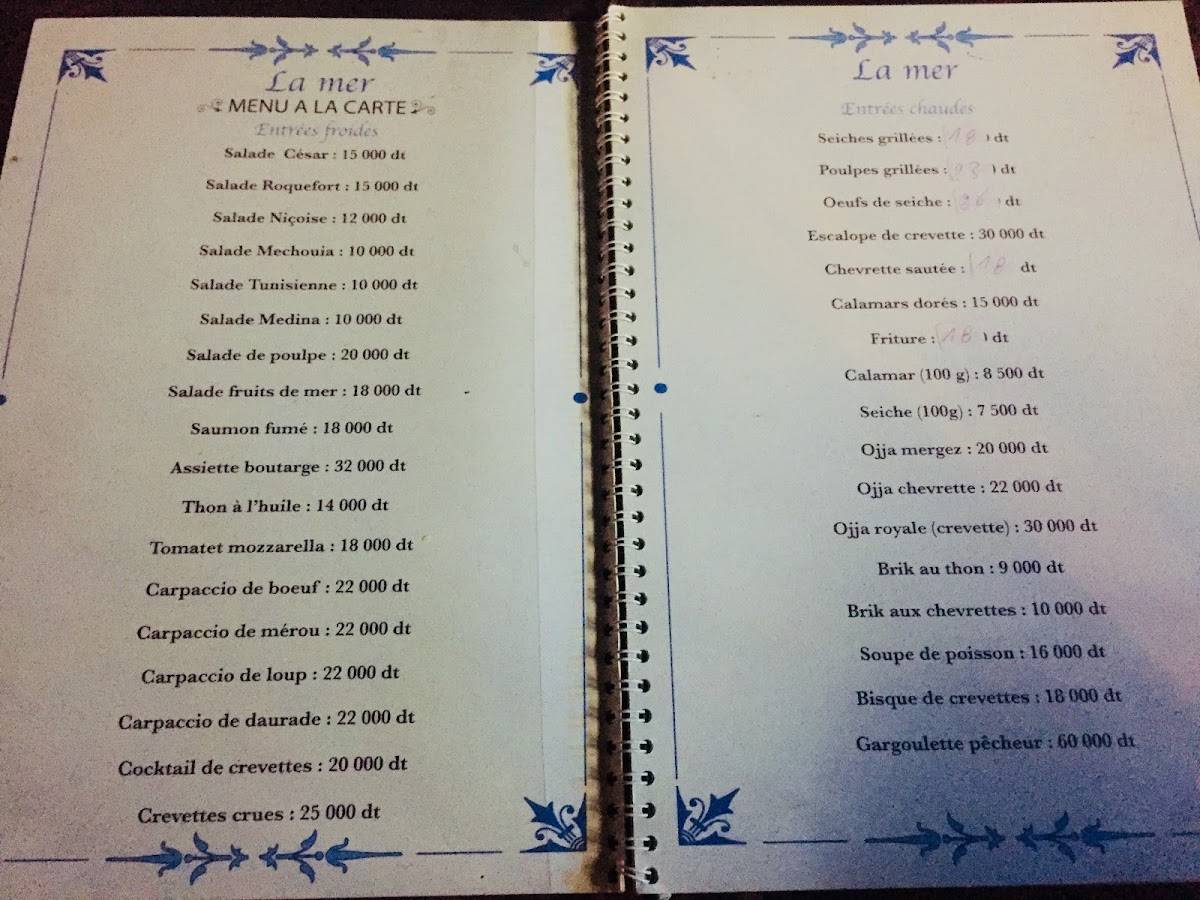 La mer
MENU A LA CARTE
Entrées froides
Salade César : 15 000 dt
Salade Roquefort : 15 000 dt
Salade Niçoise : 12 000 dt
Salade Mechouia : 10 000 dt
Salade Tunisienne : 10 000 dt
Salade Medina : 10 000 dt
Salade de poulpe : 20 000 dt
Salade fruits de mer : 18 000 dt
Saumon fumé : 18 000 dt
Assiette boutarge : 32 000 dt
Thon à l'huile : 14 000 dt
Tomatet mozzarella : 18 000 dt
Carpaccio de boeuf : 22 000 dt
Carpaccio de mérou : 22 000 dt
Carpaccio de loup : 22 000 dt
Carpaccio de daurade : 22 000 dt
Cocktail de crevettes : 20 000 dt
Crevettes crues : 25 000 dt
La mer
Entrées chaudes
Seiches grillées : 18 dt
Poulpes grillées : dt
Oeufs de seiche : dt
Escalope de crevette : 30 000 dt
Chevrette sautée : 18 dt
Calamars dorés : 15 000 dt
Friture : 18 dt
Calamar (100 g) : 8 500 dt
Seiche (100g) : 7 500 dt
Ojja mergez : 20 000 dt
Ojja chevrette : 22 000 dt
Ojja royale (crevette) : 30 000 dt
Brik au thon : 9 000 dt
Brik aux chevrettes : 10 000 dt
Soupe de poisson : 16 000 dt
Bisque de crevettes : 18 000 dt
Gargoulette pêcheur : 60 000 dt